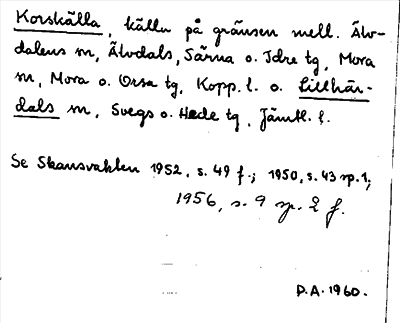 Korskälla, källa på gränsen mell. Älv-
dalens sn, Älvdals, Särna o. Idre tg, Mora
sn, Mora o. Orsa tg, Kopp. l. o. Lillhär-
dals sn, Svegs o. Hede tg, Jämtl. l.
Se Skansvakten 1952, s. 49 f.; 1950, s. 43 sp. 1;
1956, s. 9 sp. 2 f.
D.A. 1960.